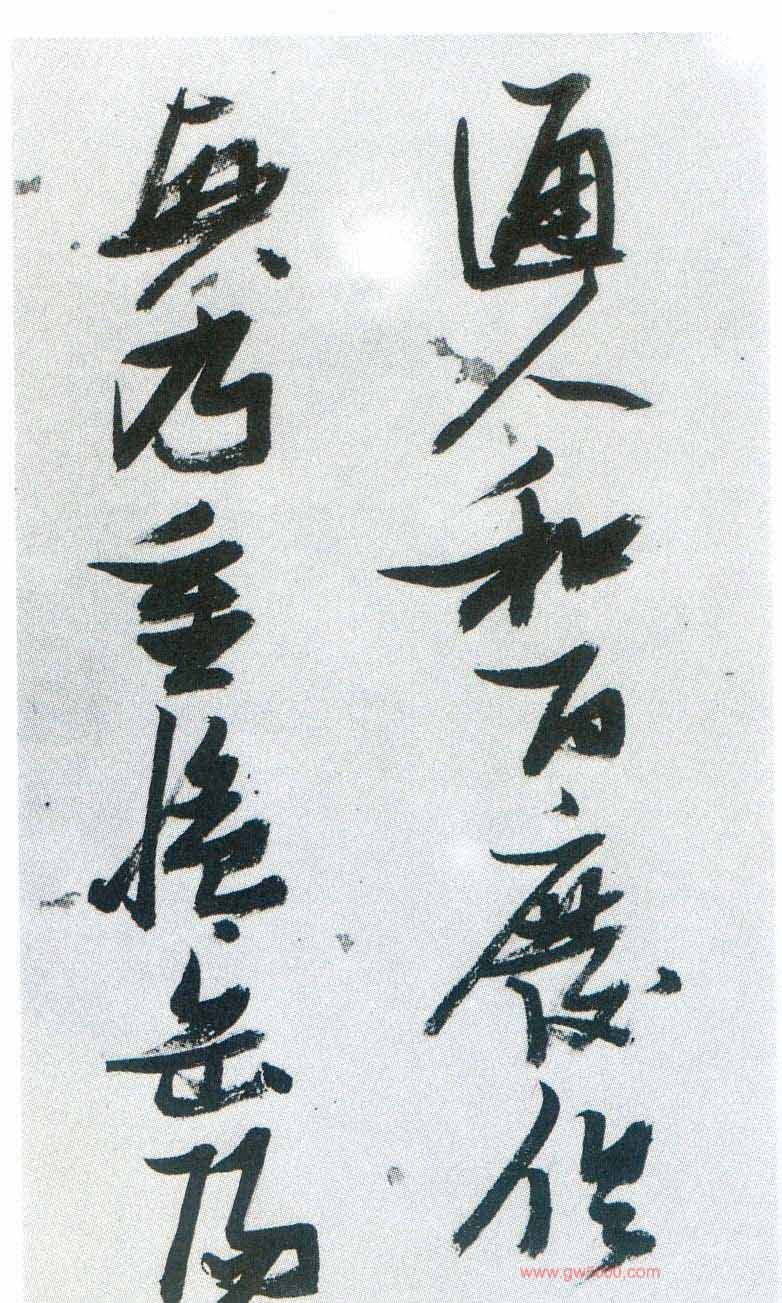 通人和百廢俱
興乃重修岳陽
www.gw8000.com